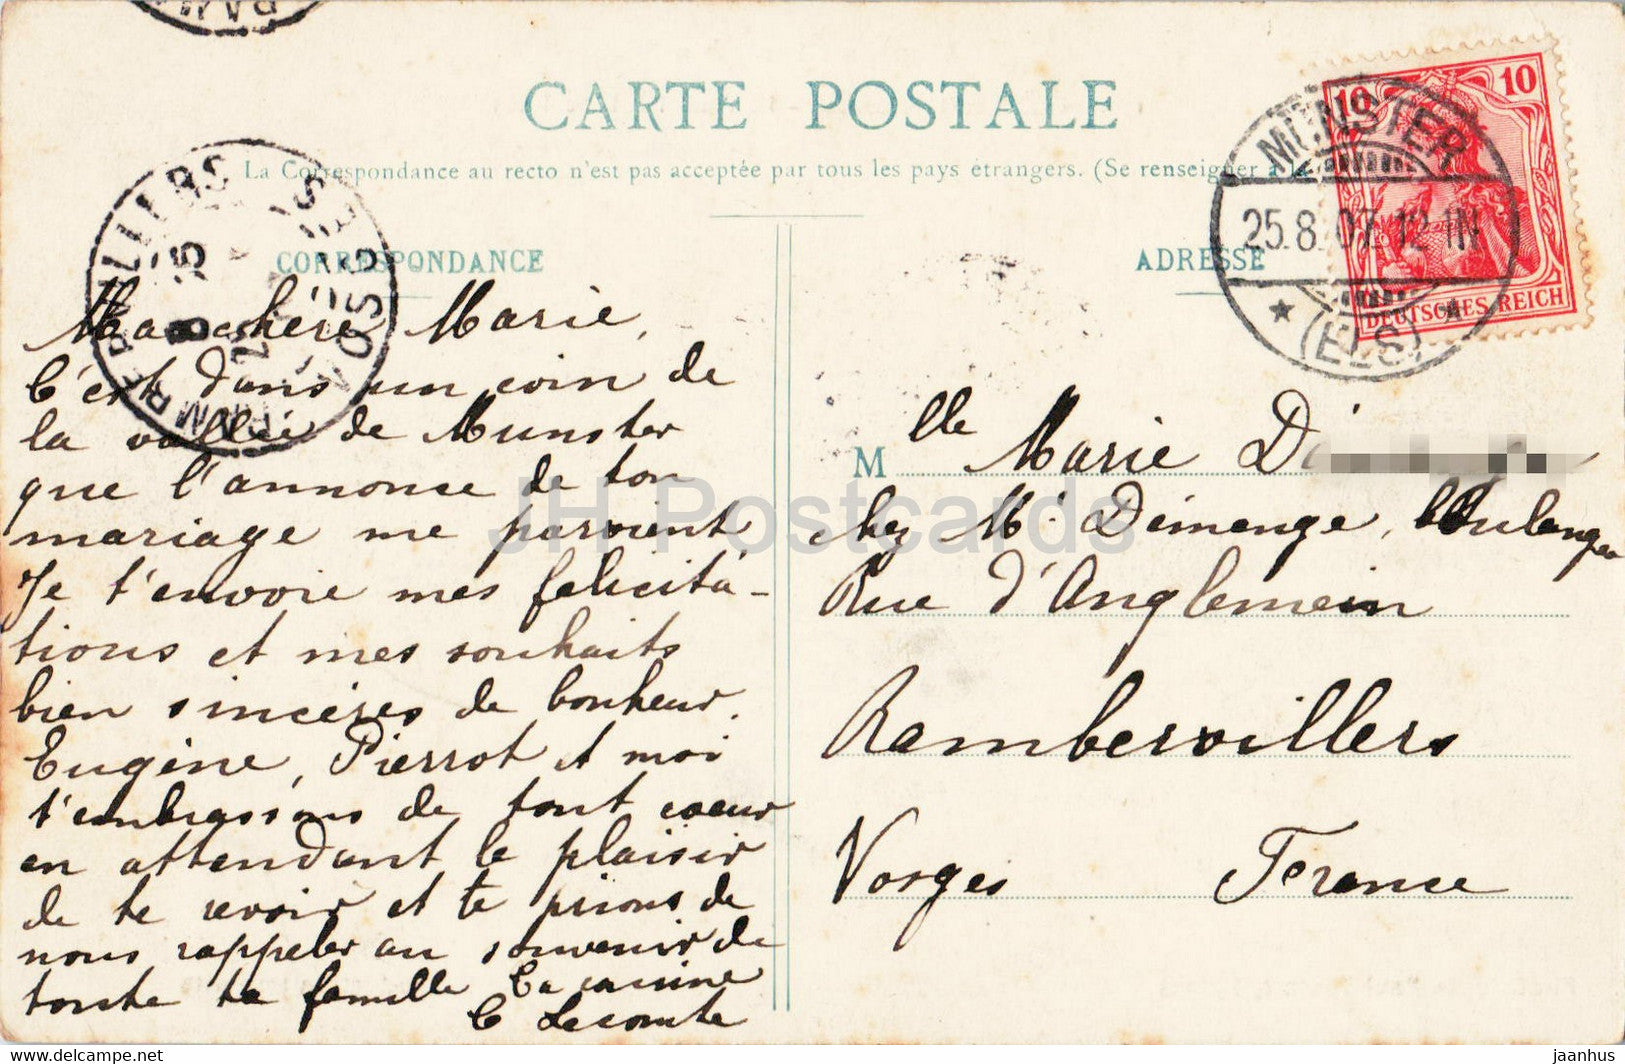 CARTE POSTALE
La Correspondance au recto n'est pas acceptée par tous les pays étrangers. (Se renseigner à la
CORRESPONDANCE
ADRESSE
10 10
DEUTSCHES REICH
MÜNSTER
25.8.07. 12-1N
* (ELS) *
VOSGES
Ma chère Marie,
C'est dans un coin de
la vallée de Munster
que l'annonce de ton
mariage me parvient,
Je t'envoie mes félicita-
tions et mes souhaits
bien sincères de bonheur.
Eugène, Pierrot et moi
t'embrassons de tout coeur
en attendant le plaisir
de te revoir et te prions de
nous rappeler au souvenir de
toute ta famille Ta cousine
C Lecomte
M lle Marie
chez Mr. Demenge, boulanger
Rue d'Anglemein
Rambervillers
Vosges France
JH Postcards
https://www.delcampe.net
jaanhus